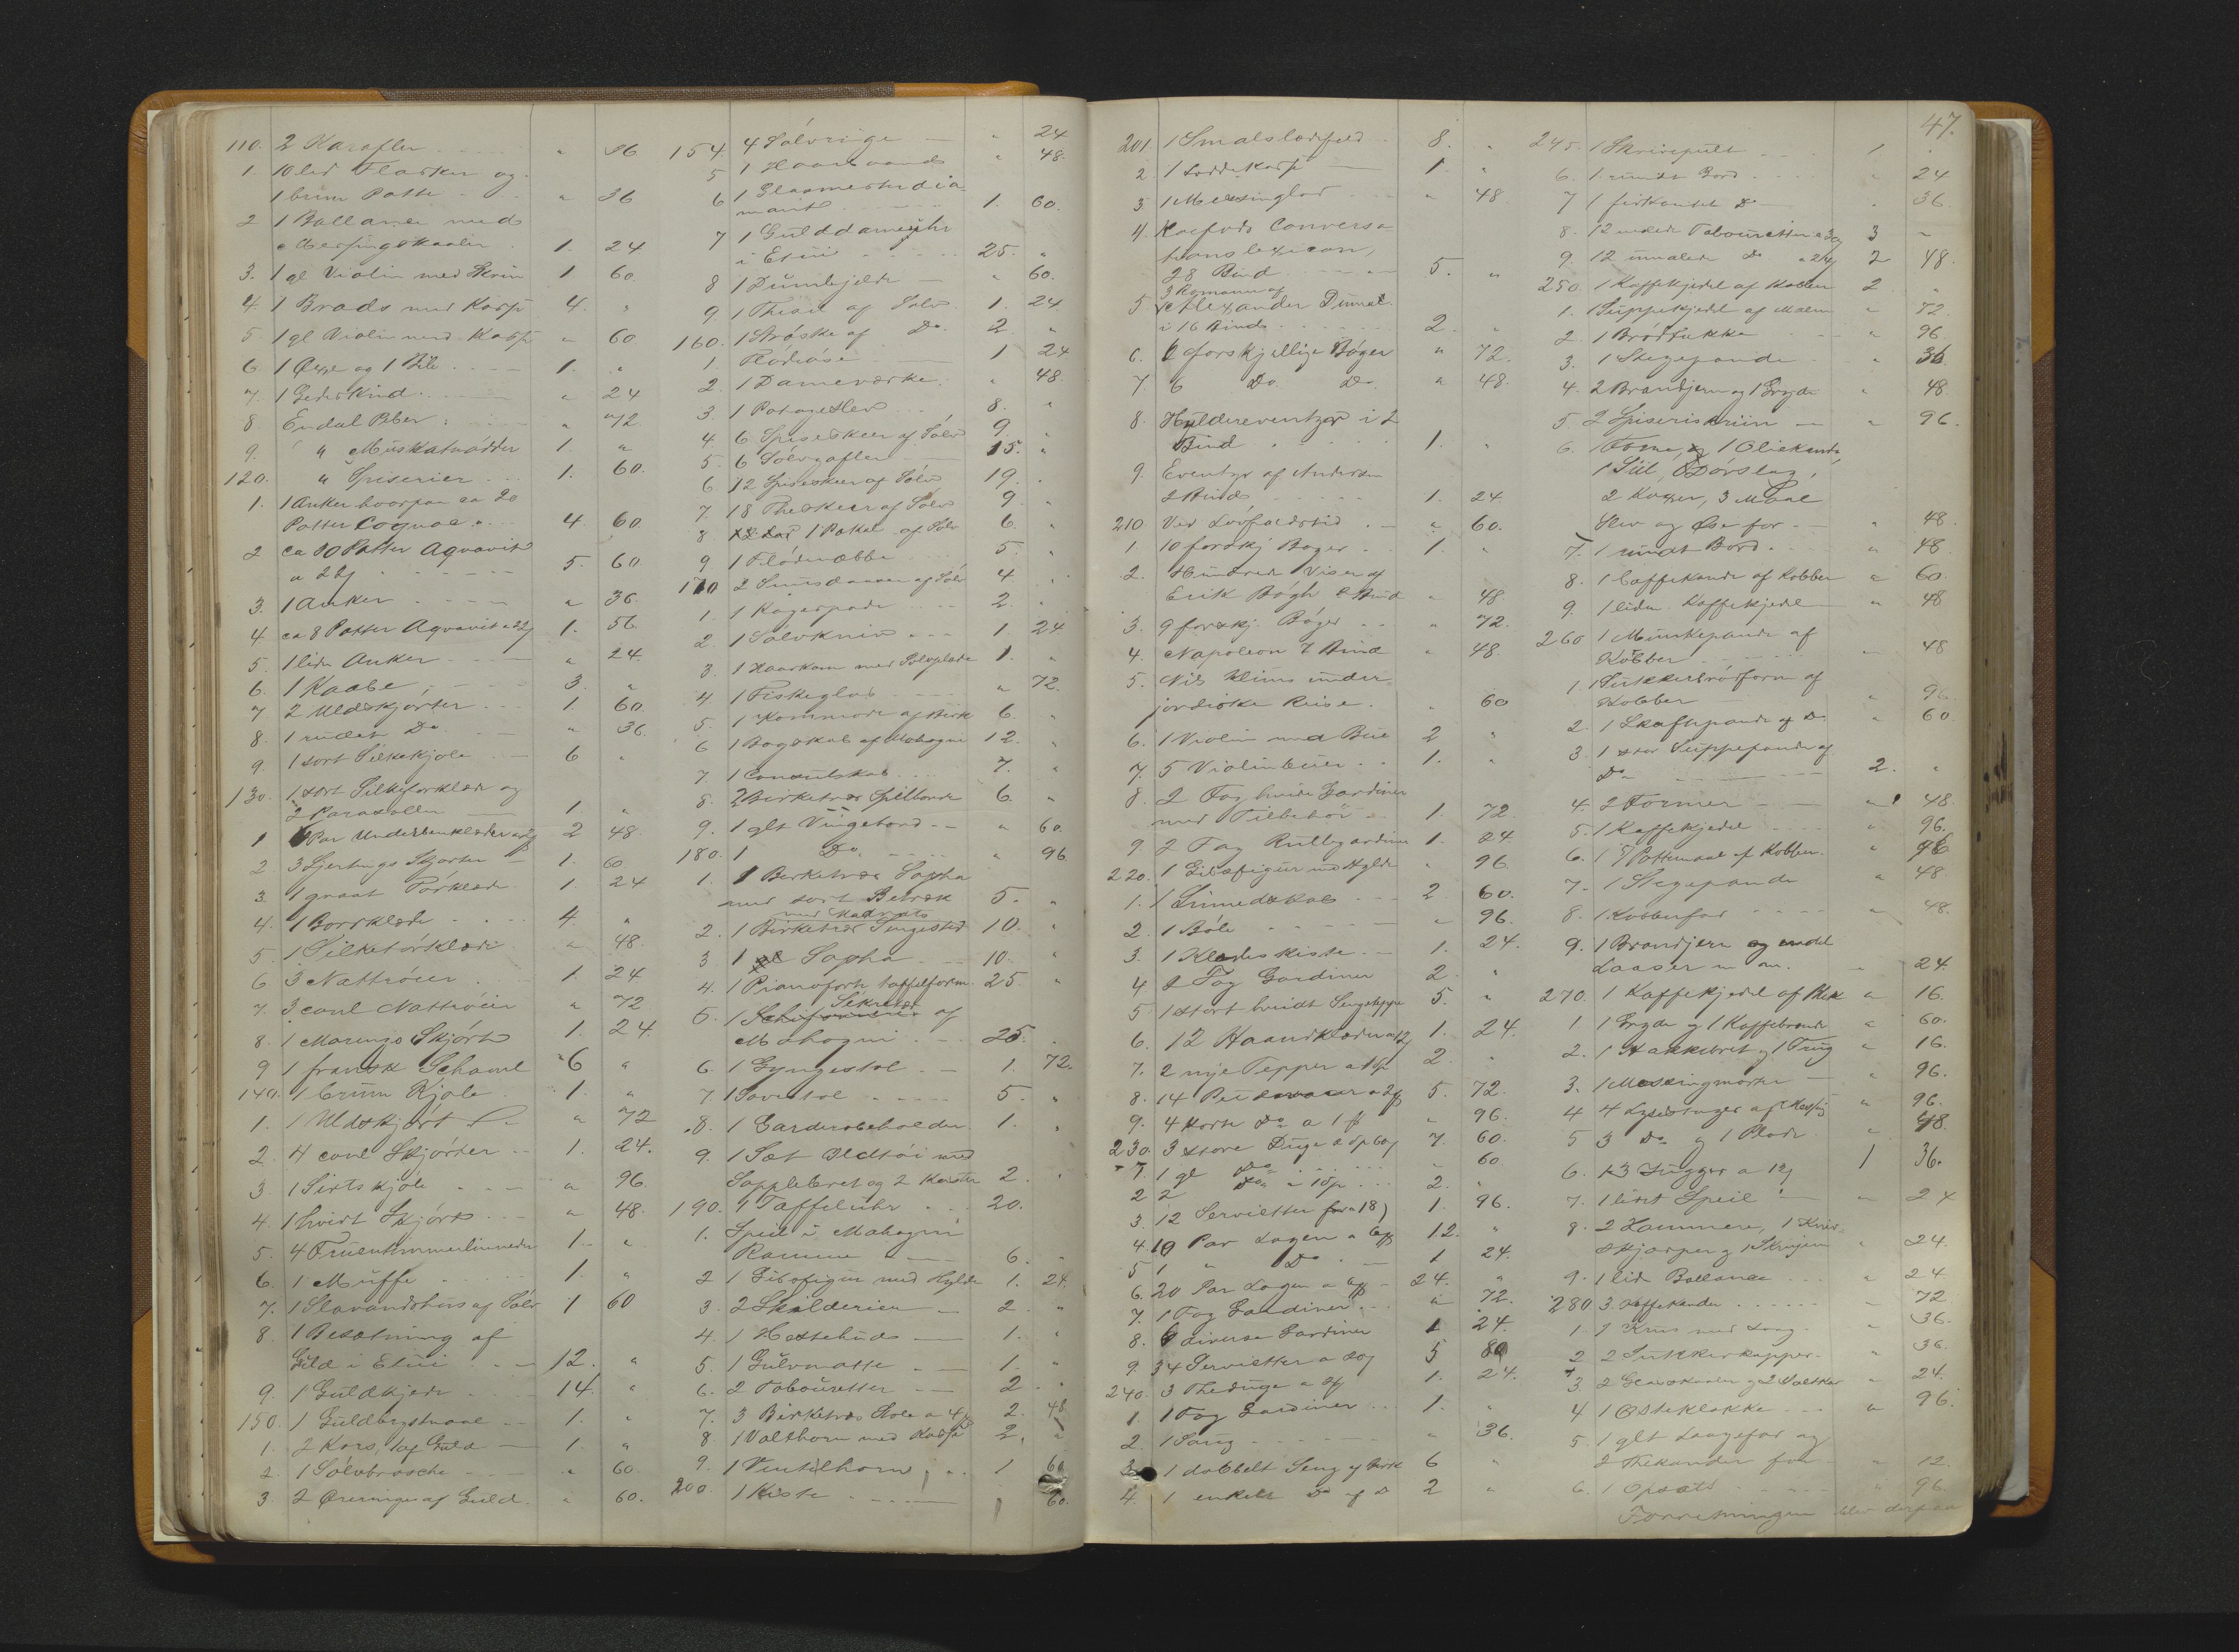 110. 2 Karafler " 86
1. 10 Flasker og
1 brun Potte " 36
2 1 Ballance med
Messingskaaler 1. 24
3. 1 gl Violin med Skrin 1. 60.
4. 1 Brads med Kasse 4. "
5 1 gl Violin med Kasse " 60
6. 1 Øxe og 1 Bile 1. "
7. 1 Gedeskind " 24
8 Endel Peber " 72
9. " Muskatnødder 1. "
120. " Spiserier 1. 60.
1. 1 Anker hvorpaa ca 20
Potter Cognac 4. 60.
2 ca 30 Potter Aqvavit
a 22 5. 60.
3. 1 Anker " 36.
4. ca 8 Potter Aqvavit a 22 1. 56
5. 1 liden Anker " 24.
6. 1 Kaabe 3. "
7 2 Uldskjorter 1. 60
8. 1 rudet Do " 36.
9. 1 sort Silkekjole 6 "
130. 1 sort Silkeforklæde og
2 Parasoller 1. "
1 6 Par Underbenklæder 2 48.
2. 3 Sjertings Skjorter 1. 60.
3. 1 graat Tørklæde 1. 24
4. 1 Bordklæde 4. "
5. 1 Silketørklæde " 48.
6 3 Nattrøier 1. 24
7. 3 coul Nattrøier " 72
8. 1 Marengo Skjørt 1. 24.
9 1 fransk Schawl 6 "
140. 1 brun Kjole 1. "
1. 1 Uldskjørt " 72
2. 4 coul Skjørter 1. 24.
3. 1 Sirtskjole " 96.
4. 1 hvidt Skjørt " 48.
5. 4 Fruentimmerlinneder 1. "
6. 1 Muffe 1. "
7. 1 Slavandshus af Sølv 1 60
8. 1 Besætning af
Guld i Etui 12. "
9. 1 Guldkjede 14. "
150. 1 Guldbrystnaal 1. "
1. 2 Kors, 1 af Guld 1. "
2. 1 Sølvbrosche " 60.
3. 2 Øreringe af Guld " 60.
154. 4 Sølvringe " 24
5 1 Haarbaand " 48.
6 1 Glasmesterdia-
mant 1. 60.
7 1 Gulddameuhr
i Etui 25. "
8 1 Dunkjedel " 60.
9. 1 Thesi af Sølv 1. 24
160. 1 Æske af Do 2. "
1. Radiøse 1 24
2. 1 Dameværke " 48.
3. 1 Potageslev 8. "
4. 6 Spiseskeer af Sølv 9. "
5. 6 Sølvgafler 15. "
6 12 Spiseskeer af Sølv 19. "
7. 18 Theskeer af Sølv 9 "
8 1 Pokal af Sølv 6. "
9 1 Flødenæbbe 5. "
170 2 Snusdaaser af Sølv 4. "
1. 1 Kagespade 2. "
2. 1 Sølvkniv 1. 24
3. 1 Haarkam med Sølvplade 1. "
4 1 Fiskeglas " 72.
5. 1 Kommode af Birk 6. "
6 1 Bogskab af Mahogni 12. "
7. 1 Consulskab 7. "
8. 2 Birketræs Spilleborde 6. "
9. 1 glt Vingebord " 60.
180. 1 Do " 96
1. 1 Birketræs Sopha
med sort Betræk 5. "
med Madrats
2. 1 Birketræs Sengested 10. "
3 1 Sopha 10. "
4. 1 Pianoforte taffelform 25. "
Sekretær
5. 1 af
Mahogni 25. "
6. 1 Gyngestol 1. 72.
7. 1 Sovestol 5. "
8. 1 Garderobeholder 1. "
9. 1 Sæt Ildtøi med
Sopplebret og 2 Koster 2. "
190. 1 Taffeluhr 20.
1. Speil i Mahogni
Ramme 6. "
2 1 Gibsfigur med Hylde 1. 24.
3. 2 Skilderier 2. "
4. 1 Hestehud 1. "
5. 1 Gulvmatte 1. "
6. 2 Tabouretter 2 "
7. 3 Birketræs Stole a 2. 48
8. 1 Valthorn med Kasse 2. "
9. 1 Ventilhorn 1 60
200. 1 Kiste 60.
47.
201. 1 Smalslædefeld 8. "
2. 1 Loddekasse 1. "
3 1 Messinglod " 48
4. Kaefods Conversa
tionslexicon,
28 Bind 5. "
3 Romaner af
5 Alexander Dumas
i 16 Bind 2. "
6. 6 forskjellige Bøger " 72.
7. 6 Do Do " 48.
8. Huldreeventyr i 2
Bind 1. "
9. Eventyr af Andersen
2 Bind 1. 24
210 Ved Løvfaldstid " 60.
1. 10 forskj Bøger 1. "
2. Hundrede Viser af
Erik Bøgh " 48.
3. 9 forskj. Bøger " 72.
4. Napoleon 7 Bind " 48.
5. Nils Klims under-
jordiske Reise " 60
6. 1 Violin med Bue 2 "
7. 5 Violinbuer 1. "
8 2 Fag hvide Gardiner
med Tilbehør 1. 72.
9. 2 Fag Rullegardiner 1. 24.
220. 1 Gibsfigur med Hylde " 96
1. 1 Linnedskab 2 60.
2. 1 Bøle " 96.
3. 1 Klædeskiste 1. 24.
4 2 Fag Gardiner 2. "
5 1 stort hvidt Sengetæppe 5. "
6. 12 Haandklæder a 12 1. 24.
7. 2 nye Tepper 2. "
8. 14 Pudevaar 5. 72.
9. 4 korte Do a 1 " 96.
230. 3 store Duge 7. 60.
1. 1 gl Do " 60
2 2 Do 2. "
3. 12 Servietter 18 1. 96.
4. 10 Par Lagen 12. "
5 1 " Do 1 24.
6. 20 Par Lagen 24. "
7. 1 Fag Gardiner " 72.
8. 6 diverse Gardiner 1 24.
9. 34 Servietter 5 80
240. 3 Theduge 1. 24.
1. 1 Fag Gardiner 1. "
2. 1 Saug " 36.
3. 1 dobbelt Seng af Birk 6 "
4. 1 enkelt Do af Do 2 "
245. 1 Skrivepult 1 "
6. 1 rundt Bord " 24
7 1 firkantet Do " 36.
8. 12 malede Tabouretter 3 "
9. 12 umalede Do a 24 2 48.
250. 1 Kaffekjedel af Kobber 2 "
1. 1 Suppekjedel af Malm " 72
2. 1 Brødbakke " 96.
3. 1 Stegepande " 36
4. 2 Brandjern og 1 Gryde " 48
5. 2 Spiseriskrin " 96.
6. Forme, og 1 Oliekande,
1 Sil, 6 Dørslag,
2 Kopper, 3 Maal
Slev og Øse for " 48.
7. 1 rundt Bord " 48
8. 1 Caffekande af Kobber " 60.
9. 1 liden Kaffekjedel " 48
260 1 Munkepande af
Kobber " 48
1. 1 Sukkerbrødform af
Kobber " 96
2. 1 Skaftpande af Do " 60
3. 1 stor Suppepande af
Do 2. "
4. 2 Former " 48.
5. 1 Kaffekjedel " 96.
6. 1 Pottemaal af Kobber " 48
7. 1 Stegepande " 48.
8. 1 Kobberfad " 48.
9. 1 Brandjern og endel
Laaser m m. " 24.
270. 1 Kaffekjedel af Blik " 16.
1 1 Gryde og 1 Kaffebrænder " 60.
2. 1 Hakkebret og 1 Trug " 16.
3. 1 Messingmorter " 96.
4 4 Lysestager af Messing " 96.
5 3 Do og 1 Plade " 48.
6. 13 Jugger a 12 1 36.
7. 1 lidet Speil " 24
8. 2 Hammere, 1 Kniv-
skjærper og 1 Skruejern " 24.
9. 1 liden Ballance " 24
280 3 Kaffekander " 72
1. 1 Krus med Laag " 36.
2 2 Sukkerkopper " 36.
3. 2 Glasskaaler og 2 Saltkar " 24.
4 1 Osteklokke " 96.
5. 1 glt Laagefad og
2 Thekander for " 12.
6. 1 Opsats " 96.
Forretningen blev derpaa